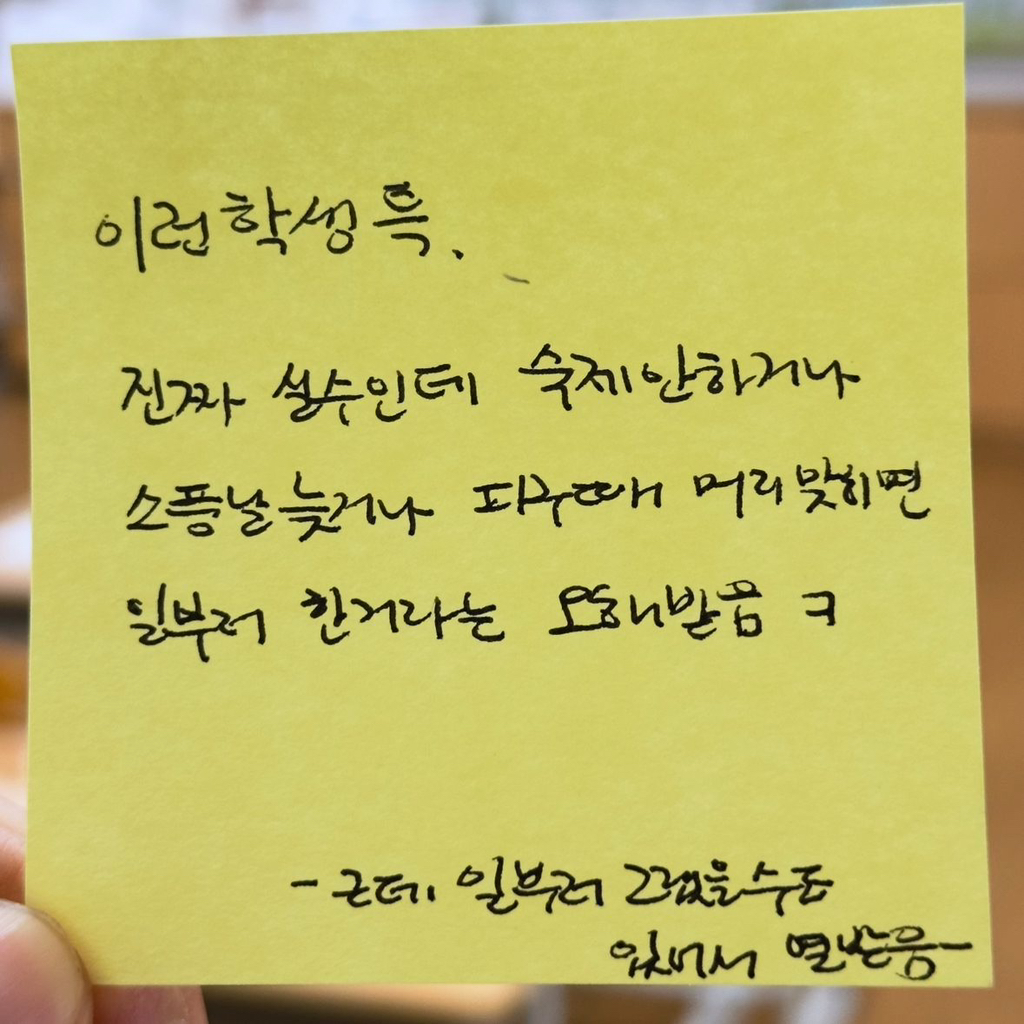 이런 학생 특.
진짜 실수인데 숙제 안하거나
소풍날 늦거나 피구때 머리 맞히면
일부러 한거라는 오해받음 ㅋ
- 근데 일부러 그랬을수도
있어서 열받음 -